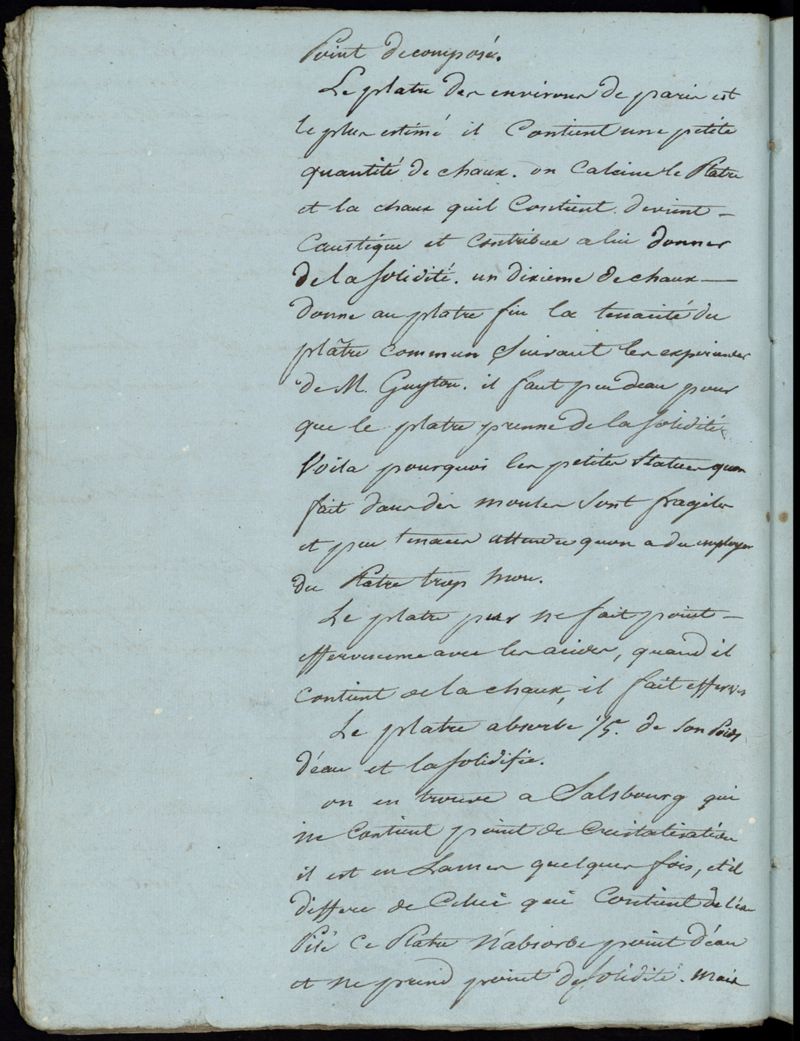 Point decomposé.
Le platre des environs de paris est
le plus estimé il Contient une petite
quantité de chaux. on Calcine le Platre
et la chaux quil Contient devient
Caustique et contribue a lui donner
de la solidité. un dixieme de chaux
donne au platre fin la tenacité du
plâtre commun suivant les experiences
de M. Guyton. il faut peu deau pour
que le platre prenne de la solidité
Voila pourquoi les petites statues quon
fait dans des moules sont fragiles
et peu tenaces attendu quon a du employer
du Platre trop mou.
Le platre pur ne fait point
effervescence avec les acides, quand il
contient de la chaux, il fait efferves
Le platre absorbe 1/5. de son Poids
d'eau et la solidifie.
on en trouve a Salsbourg qui
ne Contient point de Cristalisation
il est en Lames quelques fois, et il
differe de Celui qui Contient de l'eau
Pilé Ce Platre n'absorbe point d'eau
et ne prend point de solidité. mais